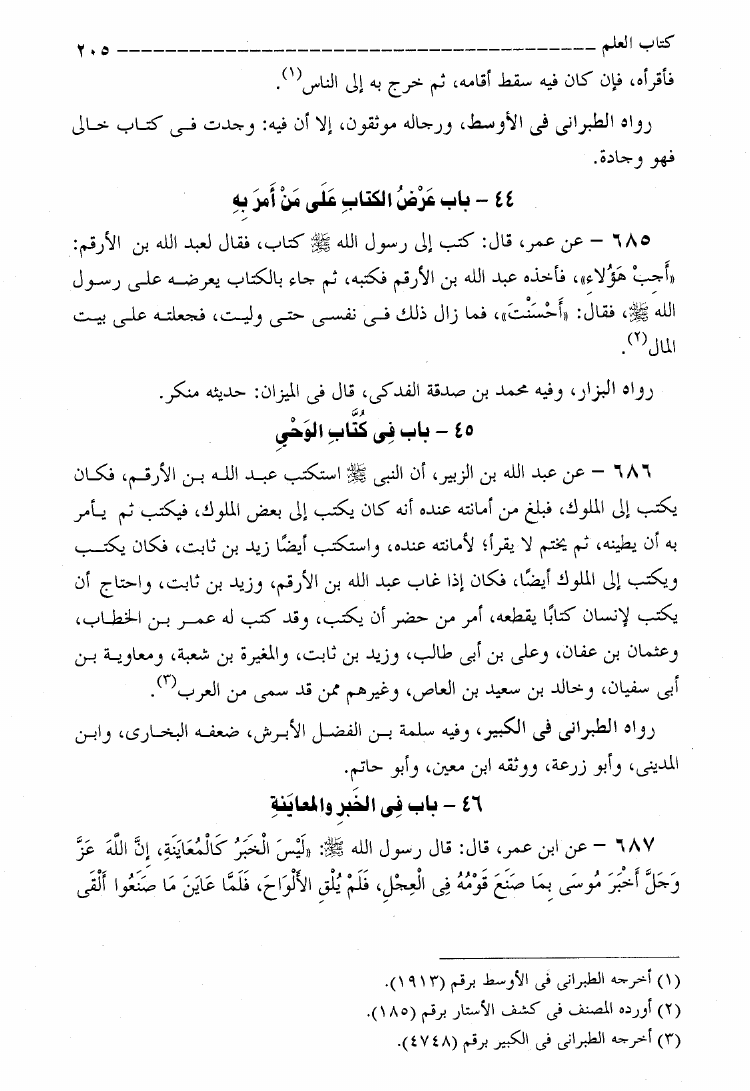 كتاب العلم ـــــــــــــــــــــــــــــــــــــــــــــــــــــــــــــ ٢٠٥
فأقرأه، فإن كان فيه سقط أقامه، ثم خرج به إلى الناس(١).
رواه الطبرانى فى الأوسط، ورجاله موثقون، إلا أن فيه: وجدت فى كتاب خالى
فهو وجادة.
٤٤ – باب عَرْضُ الكتابِ عَلَى مَنْ أَمرَ بِهِ
٦٨٥ – عن عمر، قال: كتب إلى رسول الله ﷺ كتاب، فقال لعبد الله بن الأرقم:
«أَجِبْ هَؤُلاءِ»، فأخذه عبد الله بن الأرقم فكتبه، ثم جاء بالكتاب يعرضه على رسول
الله ﷺ، فقال: «أَحْسَنْتَ»، فما زال ذلك فى نفسى حتى وليت، فجعلته على بيت
المال(٢).
رواه البزار، وفيه محمد بن صدقة الفدكى، قال فى الميزان: حديثه منكر.
٤٥ – باب فِى كُتَّابِ الوَحْىِ
٦٨٦ – عن عبد الله بن الزبير، أن النبى ﷺ استكتب عبد الله بن الأرقم، فكان
يكتب إلى الملوك، فبلغ من أمانته عنده أنه كان يكتب إلى بعض الملوك، فيكتب ثم يأمر
به أن يطينه، ثم يختم لا يقرأ؛ لأمانته عنده، واستكتب أيضًا زيد بن ثابت، فكان يكتب
ويكتب إلى الملوك أيضًا، فكان إذا غاب عبد الله بن الأرقم، وزيد بن ثابت، واحتاج أن
يكتب لإنسان كتابًا يقطعه، أمر من حضر أن يكتب، وقد كتب له عمر بن الخطاب،
وعثمان بن عفان، وعلى بن أبى طالب، وزيد بن ثابت، والمغيرة بن شعبة، ومعاوية بن
أبى سفيان، وخالد بن سعيد بن العاص، وغيرهم ممن قد سمى من العرب(٣).
رواه الطبرانى فى الكبير، وفيه سلمة بن الفضل الأبرش، ضعفه البخارى، وابن
المدينى، وأبو زرعة، ووثقه ابن معين، وأبو حاتم.
٤٦ – باب فِى الخَبرِ والمعاينَةِ
٦٨٧ – عن ابن عمر، قال: قال رسول الله ﷺ: «لَيْسَ الْخَبَرُ كَالْمُعَايَنَةِ، إِنَّ اللَّهَ عَزَّ
وَجَلَّ أَخْبَرَ مُوسَى بِمَا صَنَعَ قَوْمُهُ فِى الْعِجْلِ، فَلَمْ يُلْقِ الأَلْوَاحَ، فَلَمَّا عَايَنَ مَا صَنَعُوا أَلْقَى
(١) أخرجه الطبرانى فى الأوسط برقم (١٩١٣).
(٢) أورده المصنف فى كشف الأستار برقم (١٨٥).
(٣) أخرجه الطبرانى فى الكبير برقم (٤٧٤٨).